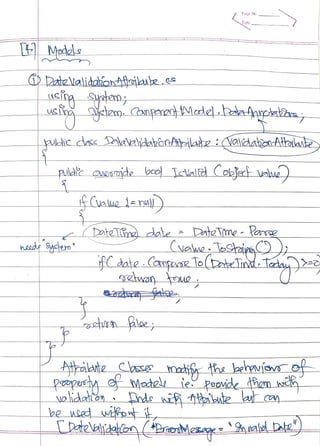 Page No.
Date
[4.] Models
① DateValidationAttribute.cs
using System;
using System.ComponentModel.DataAnnotations;
public class DateValidationAttribute : ValidationAttribute
{
public override bool IsValid (object value)
{
if (value != null)
{
DateTime date = DateTime.Parse
needs "System" (value.ToString());
if (date.CompareTo(DateTime.Today) >=0)
return true;
return false;
}
return false;
}
}
Attribute Classes modify the behaviors of
property of Models ie. provide them with
validation. Ends with Attribute but can
be used without it.
[DateValidation ("ErrorMessage = "Invalid Date")